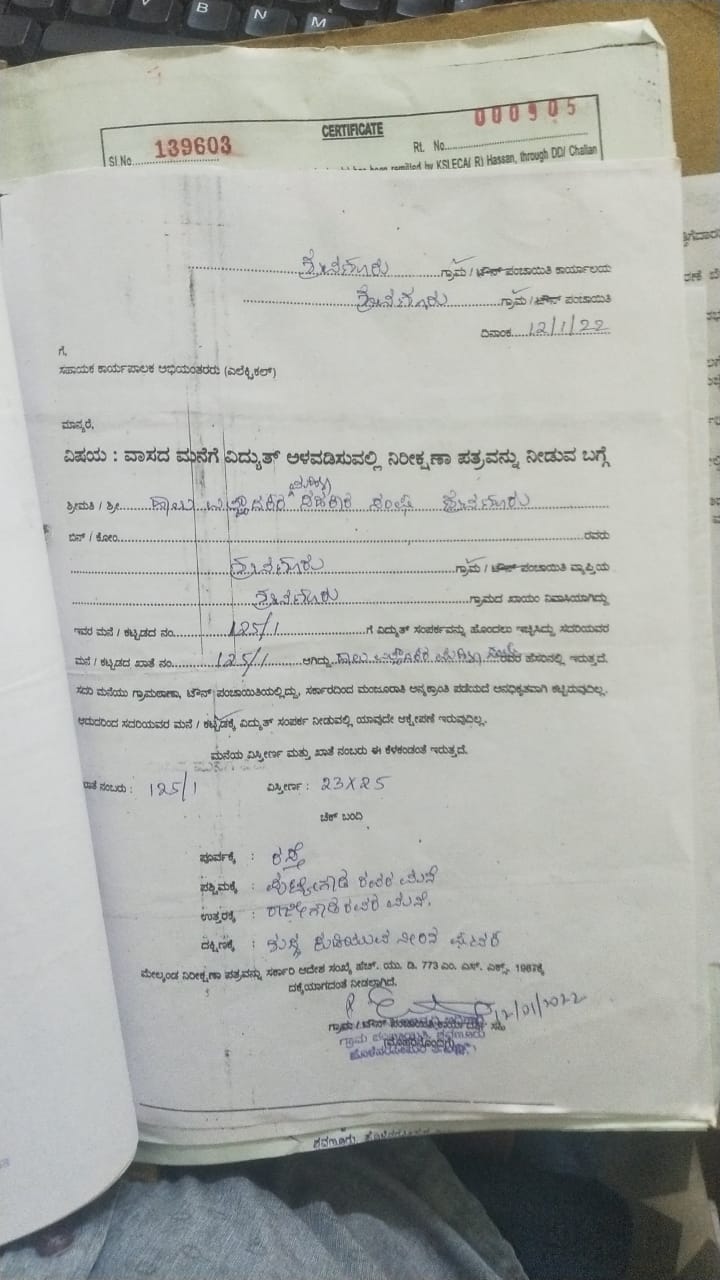 B N M
CERTIFICATE
000905
Sl.No. 139603 Rt. No.
has been remitted by KSLECA( R) Hassan, through DD/ Challan
ಗ್ರಾಮ / ಟೌನ್ ಪಂಚಾಯಿತಿ ಕಾರ್ಯಾಲಯ
ಗ್ರಾಮ / ಟೌನ್ ಪಂಚಾಯಿತಿ
ದಿನಾಂಕ 12/1/22
ಗೆ,
ಸಹಾಯಕ ಕಾರ್ಯಪಾಲಕ ಅಭಿಯಂತರರು (ಎಲೆಕ್ಟ್ರಿಕಲ್)
ಮಾನ್ಯರೆ,
ವಿಷಯ : ವಾಸದ ಮನೆಗೆ ವಿದ್ಯುತ್ ಅಳವಡಿಸುವಲ್ಲಿ ನಿರೀಕ್ಷಣಾ ಪತ್ರವನ್ನು ನೀಡುವ ಬಗ್ಗೆ
ಮಹಿಳಾ
ಶ್ರೀಮತಿ / ಶ್ರೀ ಹಾಲು ಉತ್ಪಾದಕರ ಸಹಕಾರ ಸಂಘ
ಬಿನ್ / ಕೋಂ ರವರು
ಗ್ರಾಮ / ಟೌನ್ ಪಂಚಾಯಿತಿ ವ್ಯಾಪ್ತಿಯ
ಗ್ರಾಮದ ಖಾಯಂ ನಿವಾಸಿಯಾಗಿದ್ದು
ಇವರ ಮನೆ / ಕಟ್ಟಡದ ನಂ. 125/1 ಗೆ ವಿದ್ಯುತ್ ಸಂಪರ್ಕವನ್ನು ಹೊಂದಲು ಇಚ್ಛಿಸಿದ್ದು ಸದರಿಯವರ
ಮನೆ / ಕಟ್ಟಡದ ಖಾತೆ ನಂ. 125/1 ಆಗಿದ್ದು ಹಾಲು ಉತ್ಪಾದಕರ ರವರ ಹೆಸರಿನಲ್ಲಿ ಇರುತ್ತದೆ.
ಸದರಿ ಮನೆಯು ಗ್ರಾಮಠಾಣಾ, ಟೌನ್ ಪಂಚಾಯಿತಿಯಲ್ಲಿದ್ದು, ಸರ್ಕಾರದಿಂದ ಮಂಜೂರಾತಿ ಅನ್ಯಕ್ರಾಂತಿ ಪಡೆಯದೆ ಅನಧಿಕೃತವಾಗಿ ಕಟ್ಟಿರುವುದಿಲ್ಲ.
ಆದುದರಿಂದ ಸದರಿಯವರ ಮನೆ / ಕಟ್ಟಡಕ್ಕೆ ವಿದ್ಯುತ್ ಸಂಪರ್ಕ ನೀಡುವಲ್ಲಿ ಯಾವುದೇ ಆಕ್ಷೇಪಣೆ ಇರುವುದಿಲ್ಲ.
ಮನೆಯ ವಿಸ್ತೀರ್ಣ ಮತ್ತು ಖಾತೆ ನಂಬರು ಈ ಕೆಳಕಂಡಂತೆ ಇರುತ್ತದೆ.
ಖಾತೆ ನಂಬರು : 125/1 ವಿಸ್ತೀರ್ಣ : 23X25
ಚೆಕ್ ಬಂದಿ
ಪೂರ್ವಕ್ಕೆ : ರಸ್ತೆ
ಪಶ್ಚಿಮಕ್ಕೆ : ರವರ ಮನೆ
ಉತ್ತರಕ್ಕೆ : ರಾಜೇಗೌಡ ರವರ ಮನೆ.
ದಕ್ಷಿಣಕ್ಕೆ : ಶುದ್ಧ ಕುಡಿಯುವ ನೀರಿನ ಘಟಕ
ಮೇಲ್ಕಂಡ ನಿರೀಕ್ಷಣಾ ಪತ್ರವನ್ನು ಸರ್ಕಾರಿ ಆದೇಶ ಸಂಖ್ಯೆ ಹೆಚ್. ಯು. ಡಿ. 773 ಎಂ. ಎಸ್. ಎಕ್ಸ್. 1987ಕ್ಕೆ
ದಕ್ಕೆಯಾಗದಂತೆ ನೀಡಲಾಗಿದೆ.
12/01/2022
ಗ್ರಾಮ / ಟೌನ್ ಪಂಚಾಯಿತಿ ಸಹಿ
ಗ್ರಾಮ ಪಂಚಾಯಿತಿ,